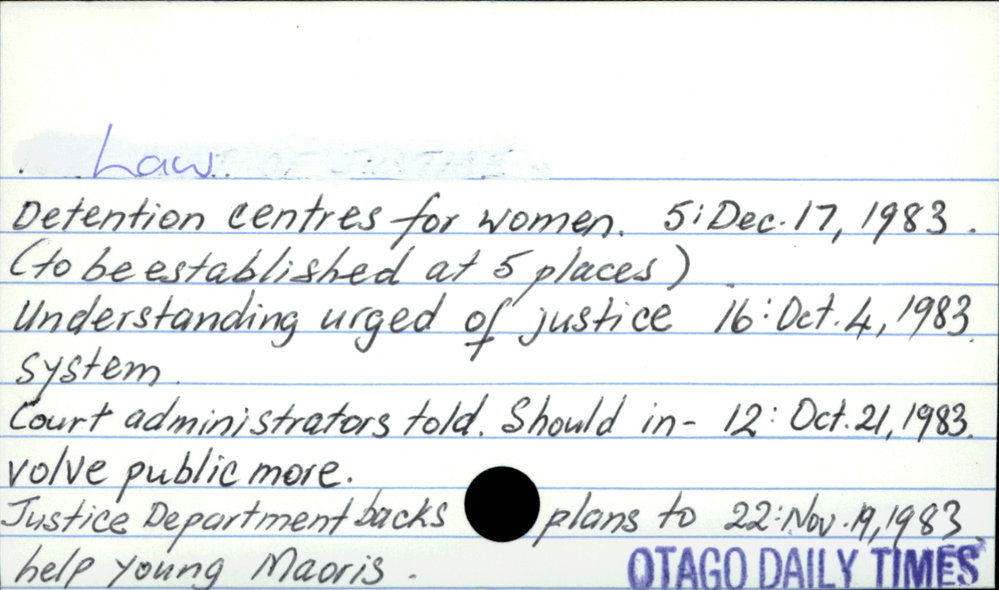 Law.
Detention centres for women. 5: Dec. 17, 1983.
(to be established at 5 places)
Understanding urged of justice 16: Oct. 4, 1983.
system.
Court administrators told. Should in- 12: Oct. 21, 1983.
volve public more.
Justice Department backs plans to 22: Nov. 19, 1983.
help young Maoris.
OTAGO DAILY TIMES